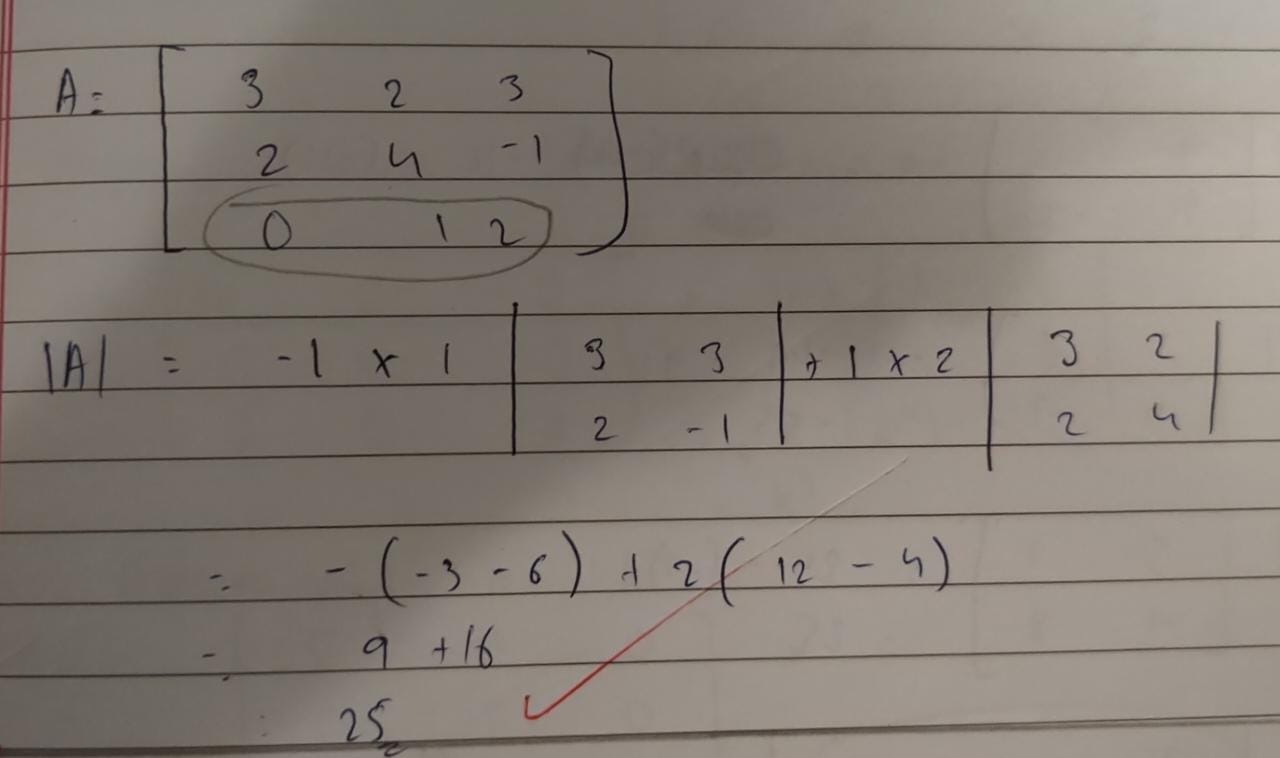 A = [ 3 2 3
2 4 -1
0 1 2 ]
|A| = -1 x 1 | 3 3 | + 1 x 2 | 3 2 |
2 -1 2 4
= - (-3 - 6) + 2 ( 12 - 4)
= 9 + 16
: 25